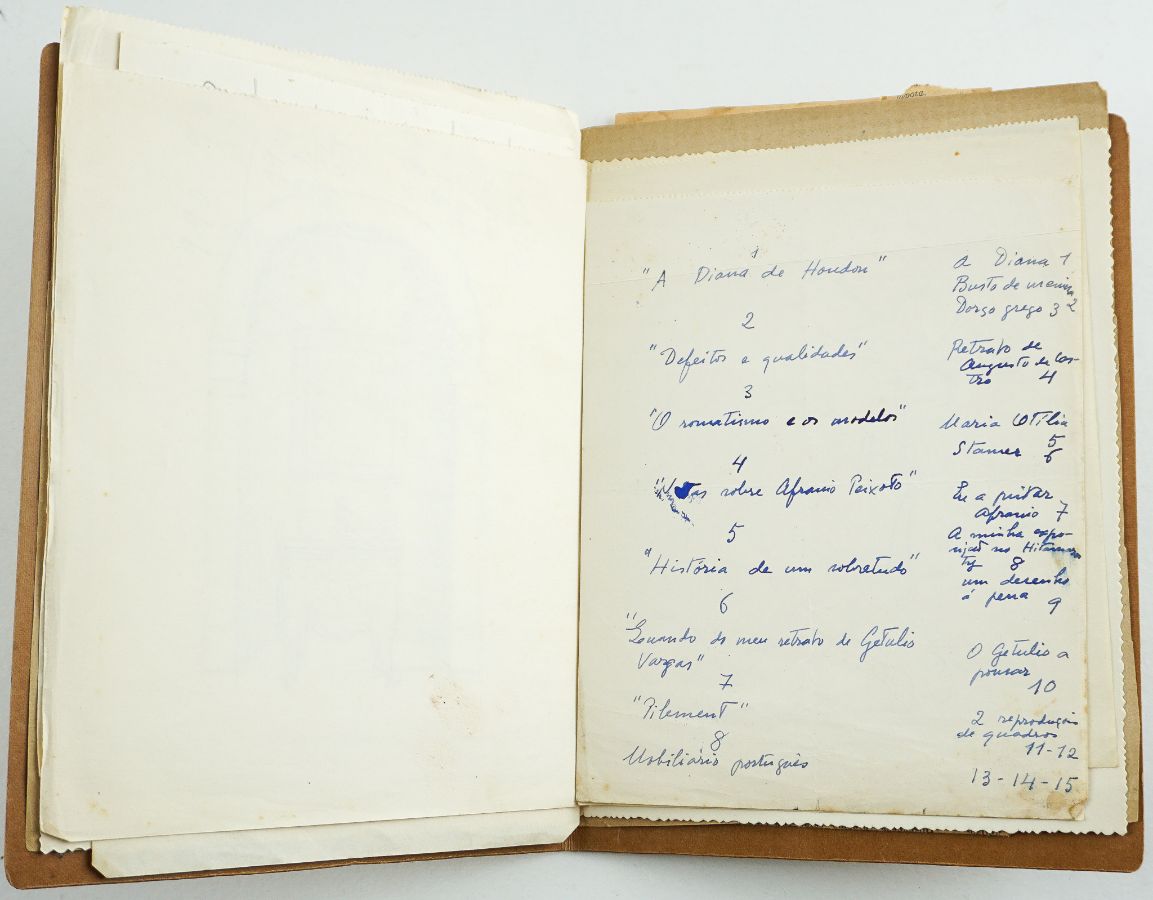 1
"A Diana de Houdon"
A Diana 1
Busto de menina
2
Dorso grego 3
2
"Defeitos e qualidades"
Retrato de
Augusto de Cas-
tro 4
3
"O romatismo e os modelos"
Maria Otília
5
Stamer 6
4
sobre Afranio Peixoto"
Eu a pintar
Afranio 7
5
"História de um sobretudo"
A minha expo-
no Itamara
ty 8
um desenho
á pena 9
6
do meu retrato de Getulio
Vargas"
O Getulio a
pousar
10
7
"Pilement"
2 reproduções
de quadros
11-12
8
Mobiliário português
13-14-15